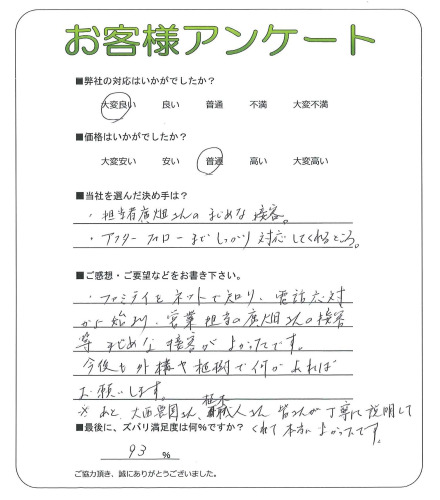 お客様アンケート
■弊社の対応はいかがでしたか?
大変良い 良い 普通 不満 大変不満
■価格はいかがでしたか?
大変安い 安い 普通 高い 大変高い
■当社を選んだ決め手は?
・担当者廣畑さんのまじめな接客。
・アフターフォローまでしっかり対応してくれるところ。
■ご感想・ご要望などをお書き下さい。
・ファミテイをネットで知り、電話応対
から始まり、営業担当の廣畑さんの接客
等まじめな接客がよかったです。
今後も外構や植樹で何かあれば
お願いします。
※あと、大西農園さん、植木職人さん皆さんが丁寧に説明して
くれて本当によかったです。
■最後に、ズバリ満足度は何%ですか?
93 %
ご協力頂き、誠にありがとうございました。